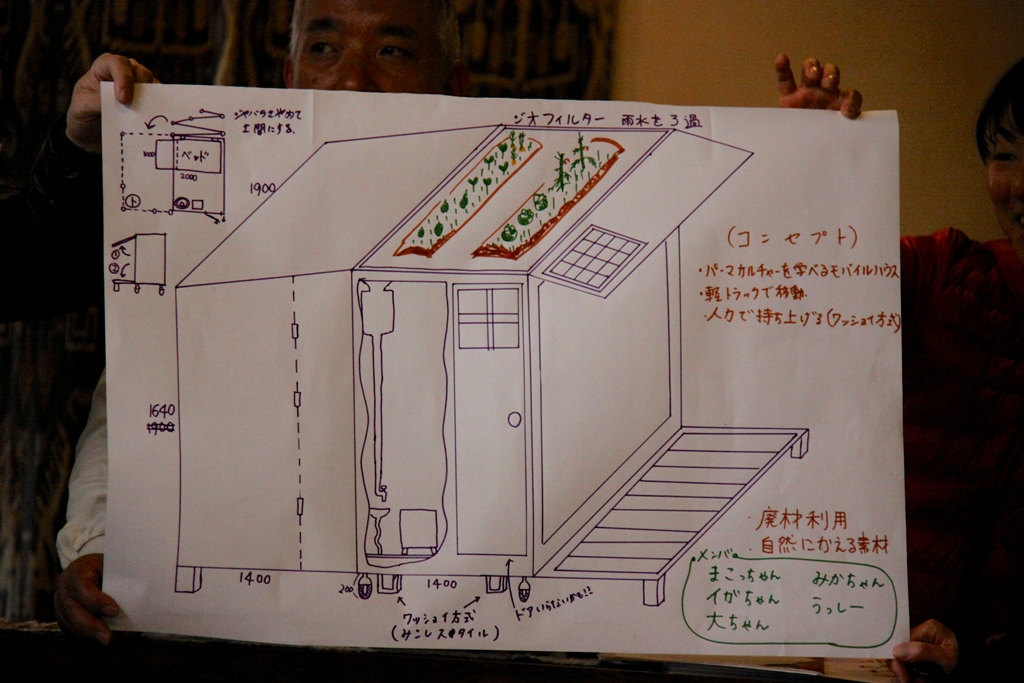 ジャバラをやめて
土間にする。
ベッド
2000
ト
①
②
1900
ジオフィルター 雨水をろ過
(コンセプト)
・パーマカルチャーを学べるモバイルハウス
・軽トラックで移動
・人力で持ち上げる(ワッショイ方式)
1640
1900
1400
200
1400
ワッショイ方式
(みこしスタイル)
ドアいらないかも!!
・廃材利用
・自然にかえる素材
メンバー
まこっちゃん みかちゃん
イガちゃん うっしー
大ちゃん